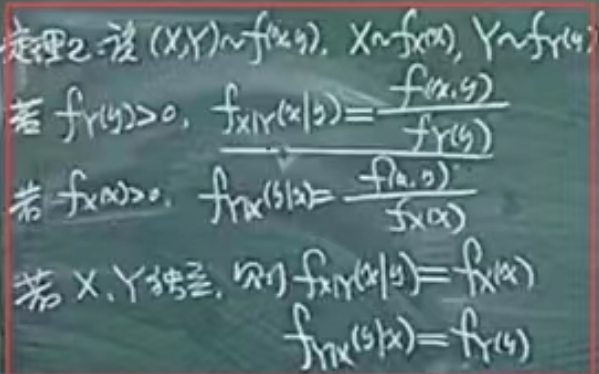 定理2:设 (X,Y)~f(x,y), X~f_X(x), Y~f_Y(y)
若 f_Y(y)>0, f_{X|Y}(x|y)=f(x,y)/f_Y(y)
若 f_X(x)>0, f_{Y|X}(y|x)=f(x,y)/f_X(x)
若 X、Y独立, 则 f_{X|Y}(x|y)=f_X(x)
f_{Y|X}(y|x)=f_Y(y)